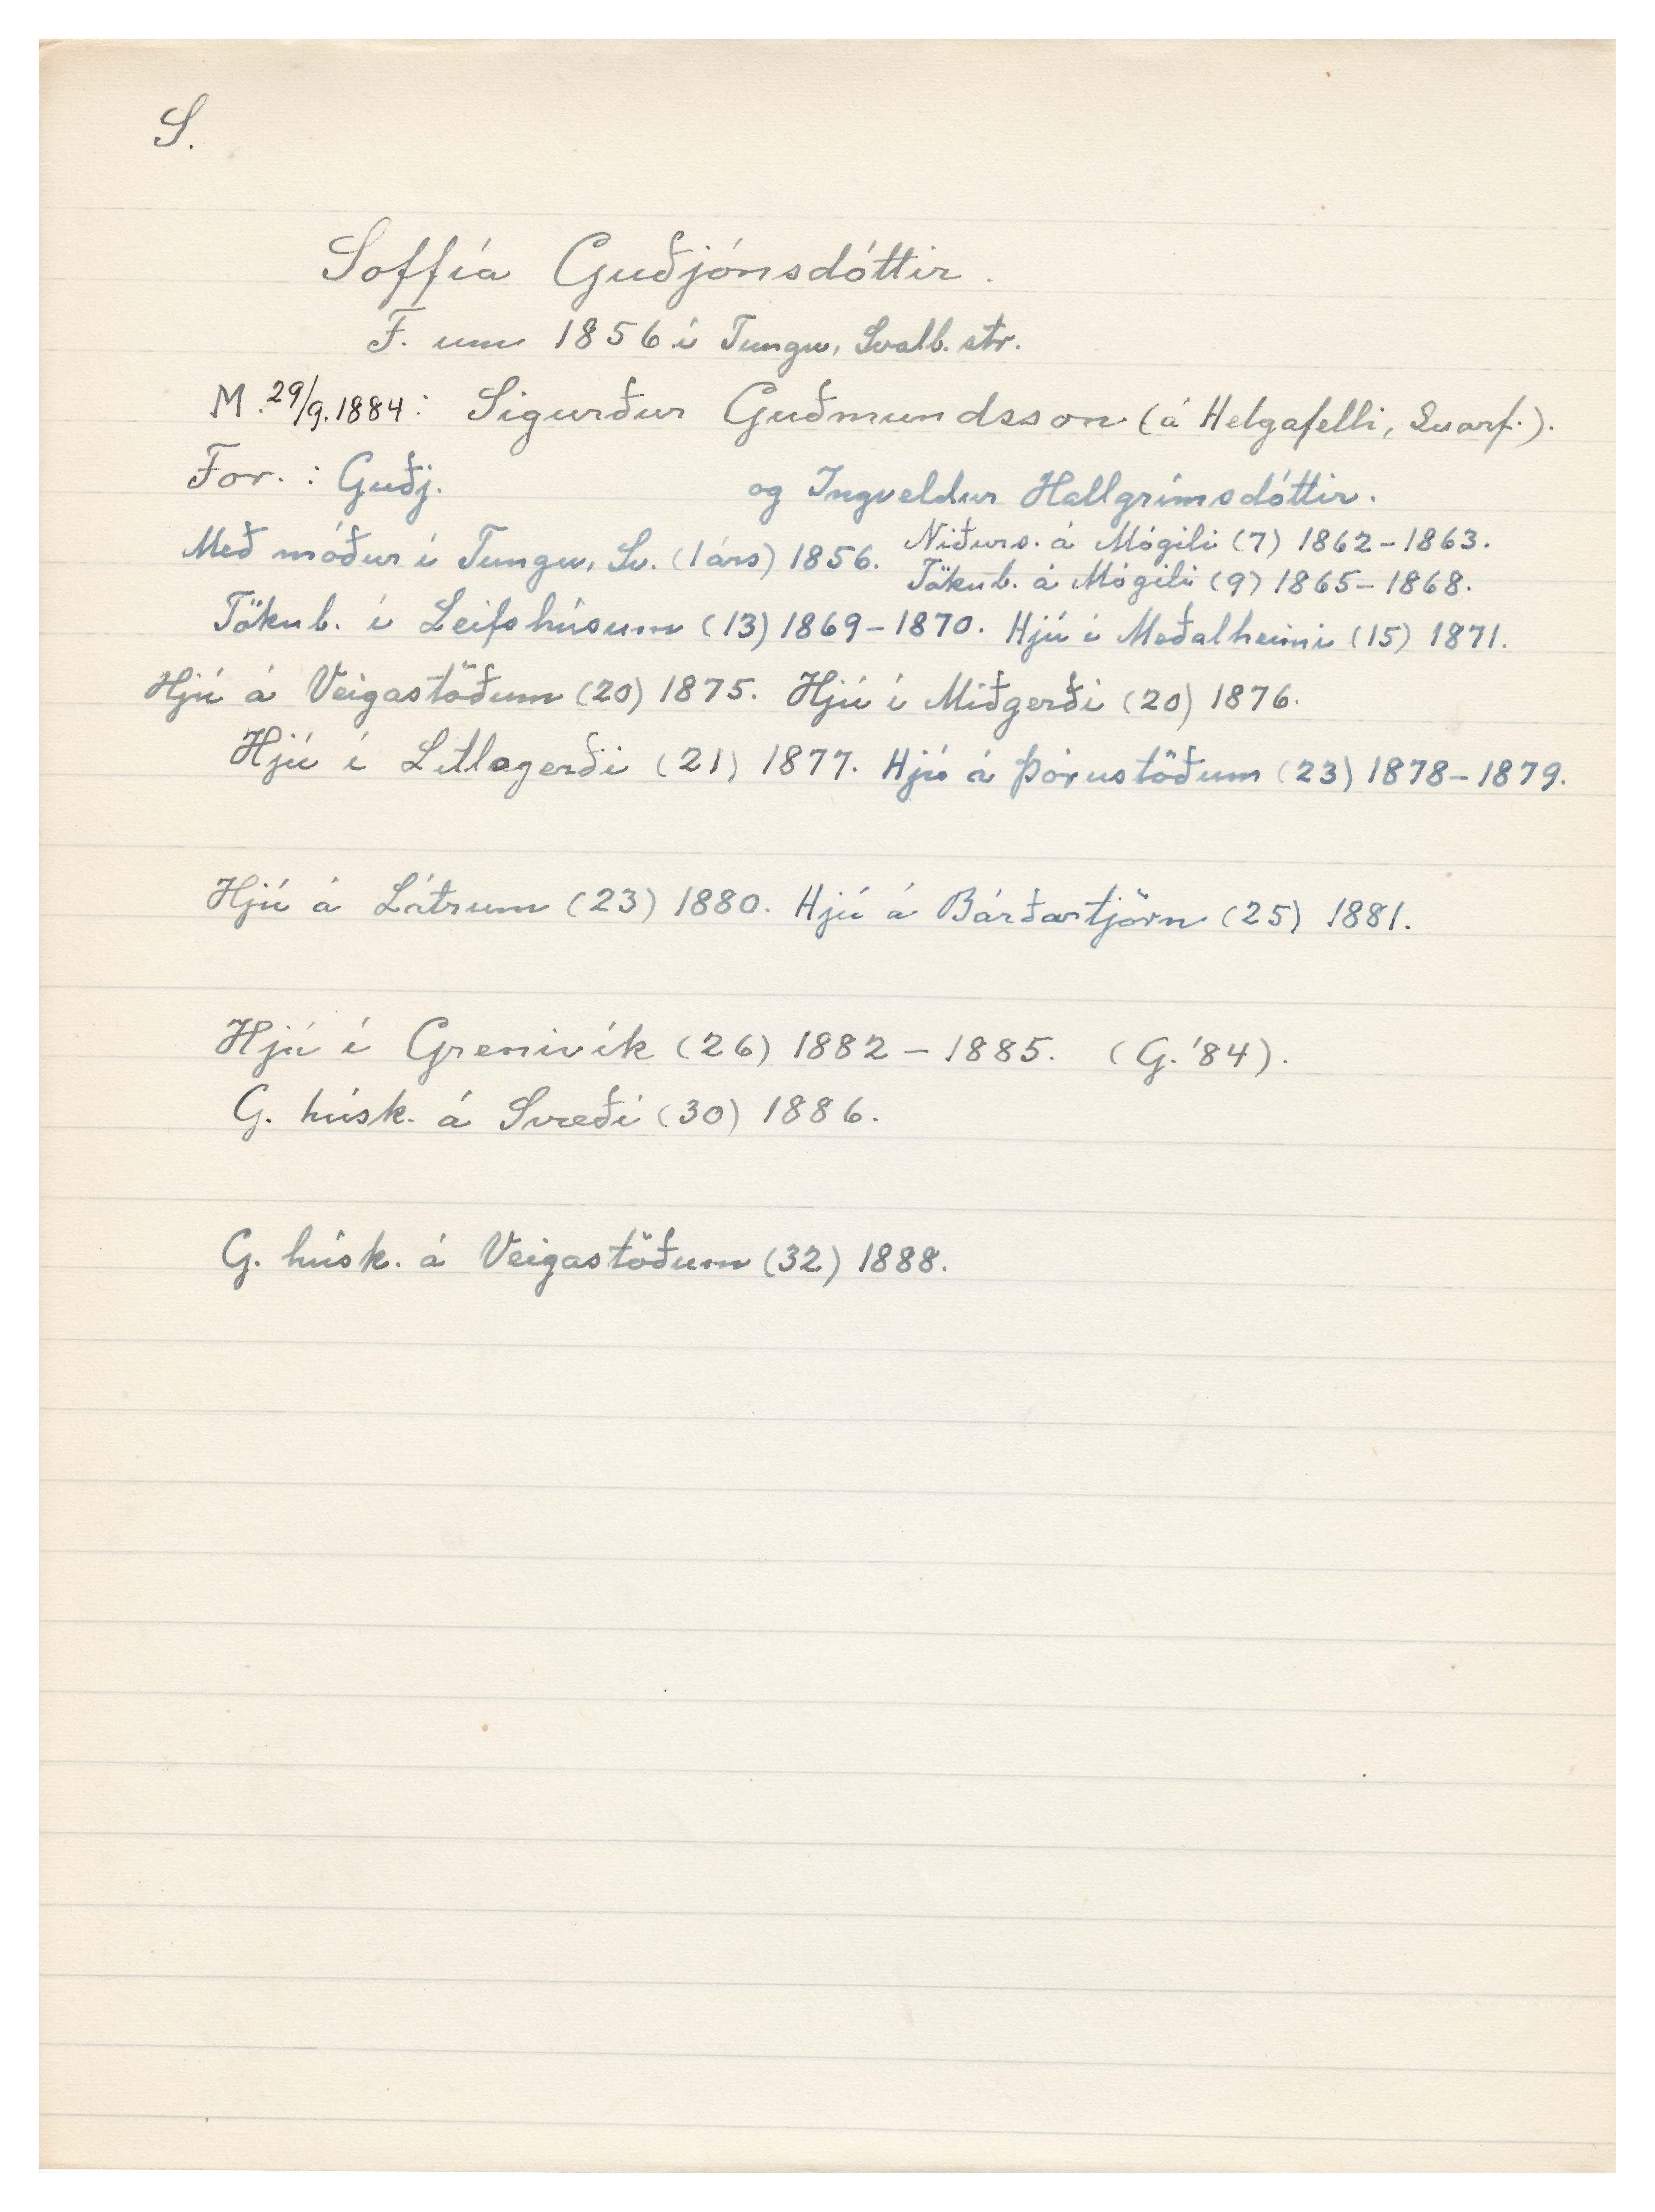 S.
Soffía Guðjónsdóttir.
F. um 1856 í Tungu, Svalb.str.
M. 29/9. 1884: Sigurður Guðmundsson (á Helgafelli, Svarf.).
For.: Guðj. og Ingveldur Hallgrímsdóttir.
Með móður í Tungu, Sv. (1 árs) 1856. Niðurs. á Mógili (7) 1862-1863.
Tökub. á Mógili (9) 1865-1868.
Tökub. í Leifshúsum (13) 1869-1870. Hjú í Meðalheimi (15) 1871.
Hjú á Veigastöðum (20) 1875. Hjú í Miðgerði (20) 1876.
Hjú í Litlagerði (21) 1877. Hjú á Þórustöðum (23) 1878-1879.
Hjú á Látrum (23) 1880. Hjú á Bárðartjörn (25) 1881.
Hjú í Grenivík (26) 1882-1885. (G. '84).
G. húsk. á Svæði (30) 1886.
G. húsk. á Veigastöðum (32) 1888.